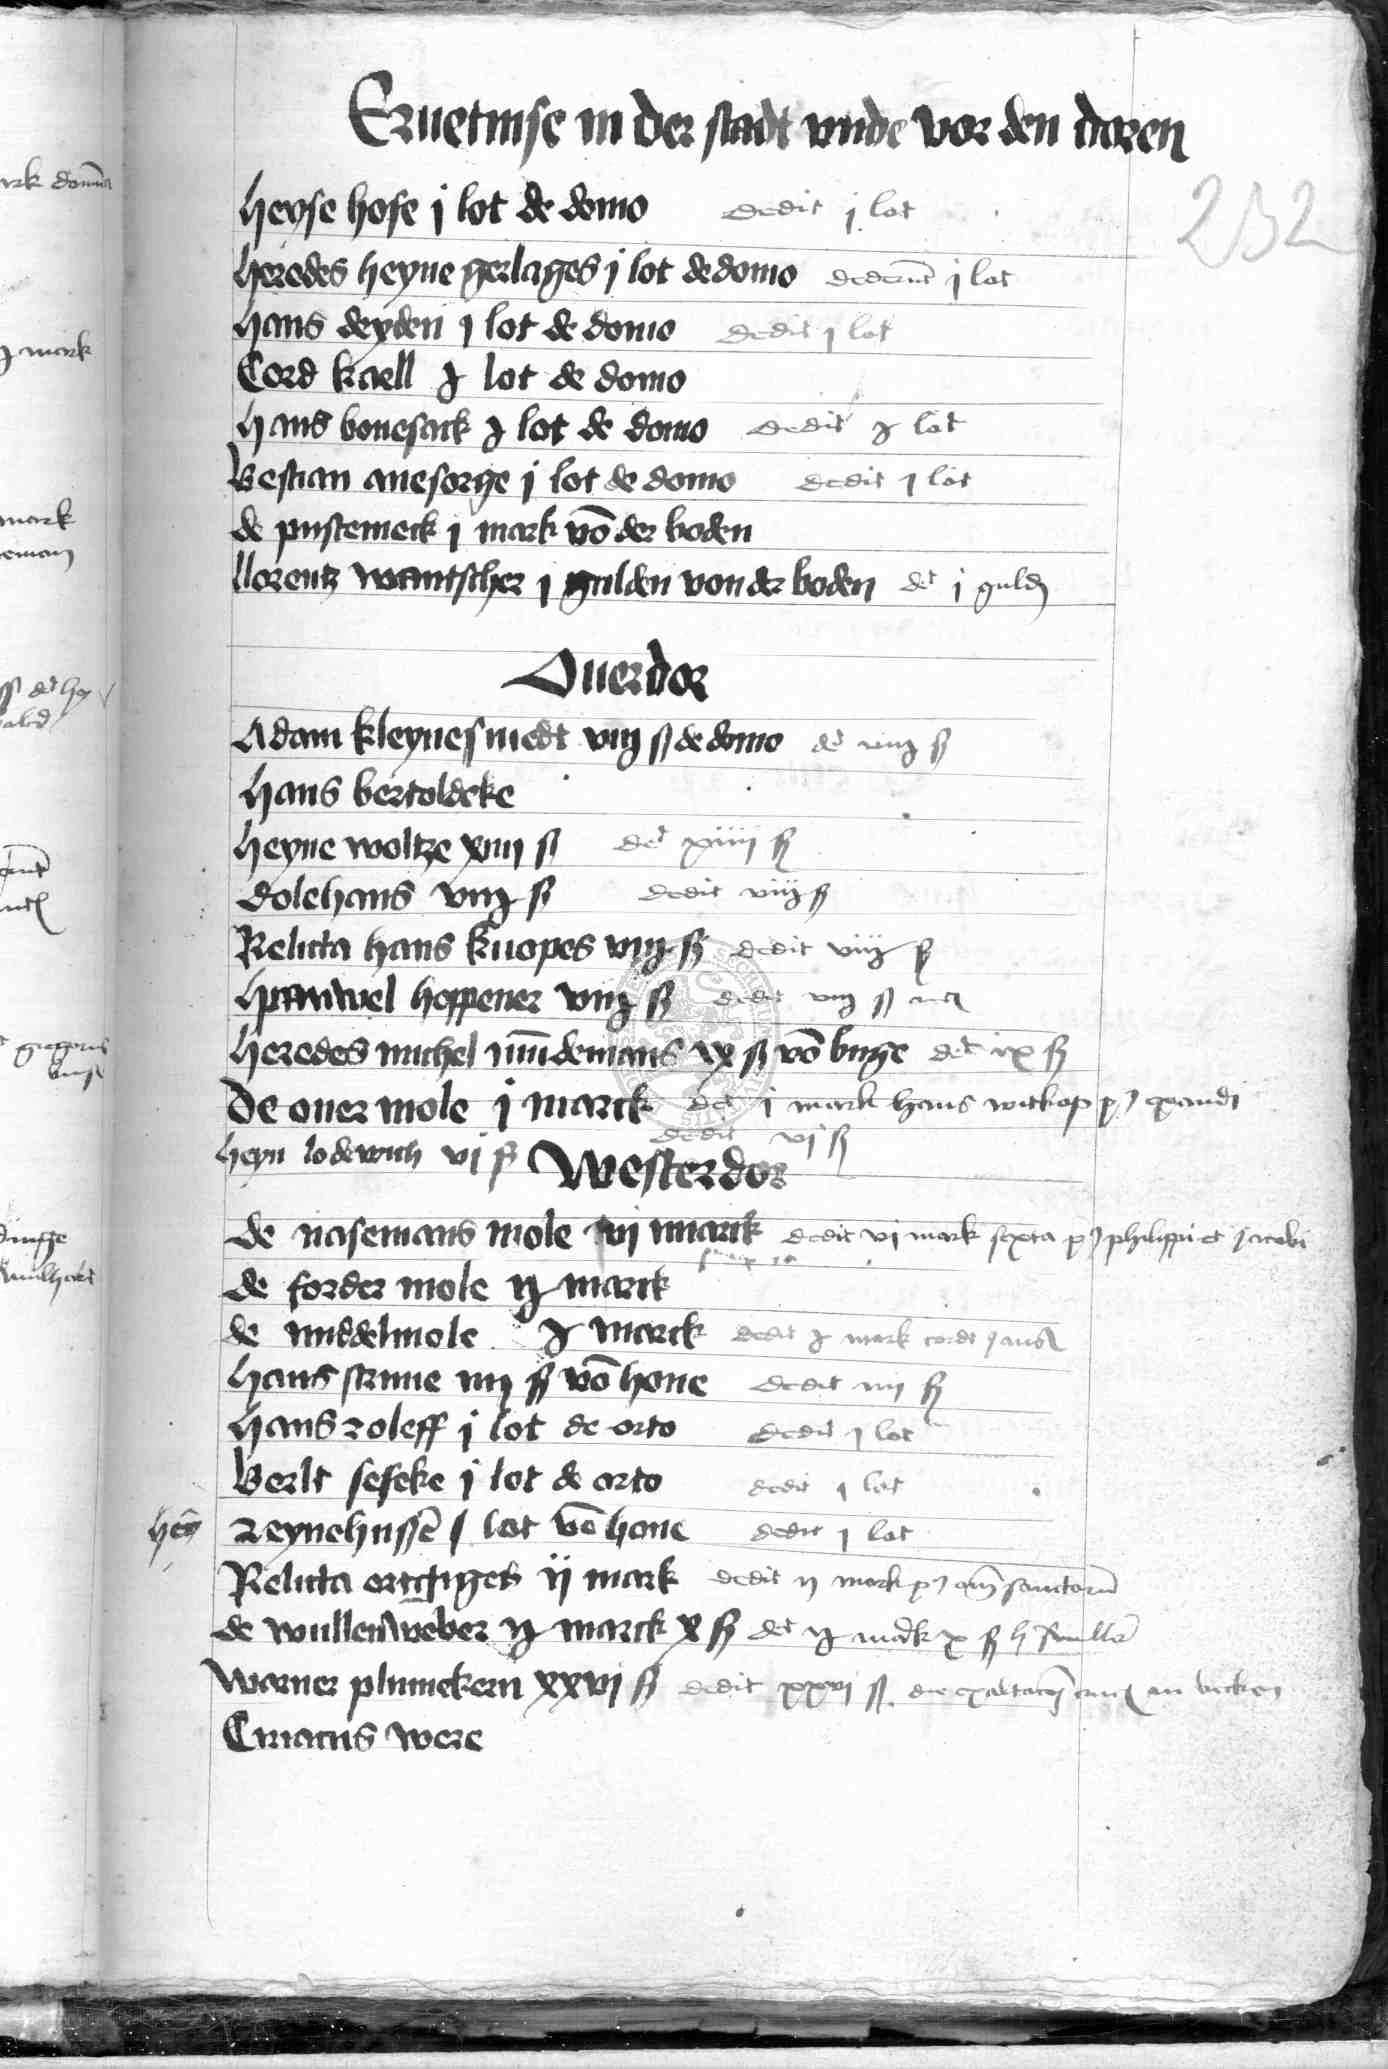 Eruetinse in der stadt vnde vor den doren
232
Heyse hose j lot de domo dedit j lot
Heredes heyne gerlages j lot de domo dederūt j lot
Hans deyden j lot de domo dedit j lot
Cord kaell j lot de domo
Hans bonesack j lot de domo dedit j lot
Bestian anesorge j lot de domo dedit j lot
de pustemeck j mark vō der boden
Llorentz wantscher j gulden von der boden det j guld
Ouerdor
Adam kleynesmedt viij ß de domo det viij ß
Hans bertoldeke
Heyne woltze xiiij ß det xiiij ß
dolehans viij ß dedit viij ß
Relicta hans knopes viij ß dedit viij ß
pauwel hoppener viij ß dedit viij ß
Heredes michel mūdemans ix ß vō huge det ix ß
De ouer mole j marck det j mark hans witkop p exaudi
heyn lodewich vj ß dedit vj ß
Westerdor
de nasemans mole vj marck dedit vj mark sexta p philippi et jacobi
de forder mole ij marck
de middelmole j marck dedit j mark cordt
Hans strune iiij ß vō houe dedit iiij ß
Hans roleff j lot de orto dedit j lot
Berlt seseke j lot de orto dedit j lot
hey reynehussē j lot vō houe dedit j lot
Relicta ortges ij mark dedit ij mark p om̄ sanctorū
de wullenweber ij marck x ß det ij mark x ß h
Warner plumekern xxvj ß dedit xxvj ß die exaltacōi
Ciriacus were